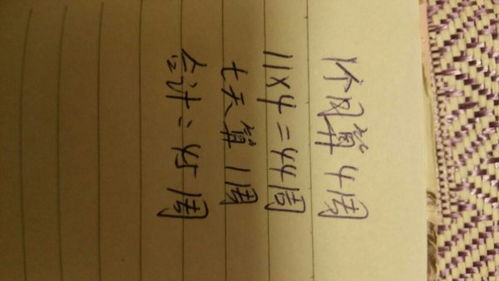 个月算4周
11×4=44周
七天算1周
合计=45周